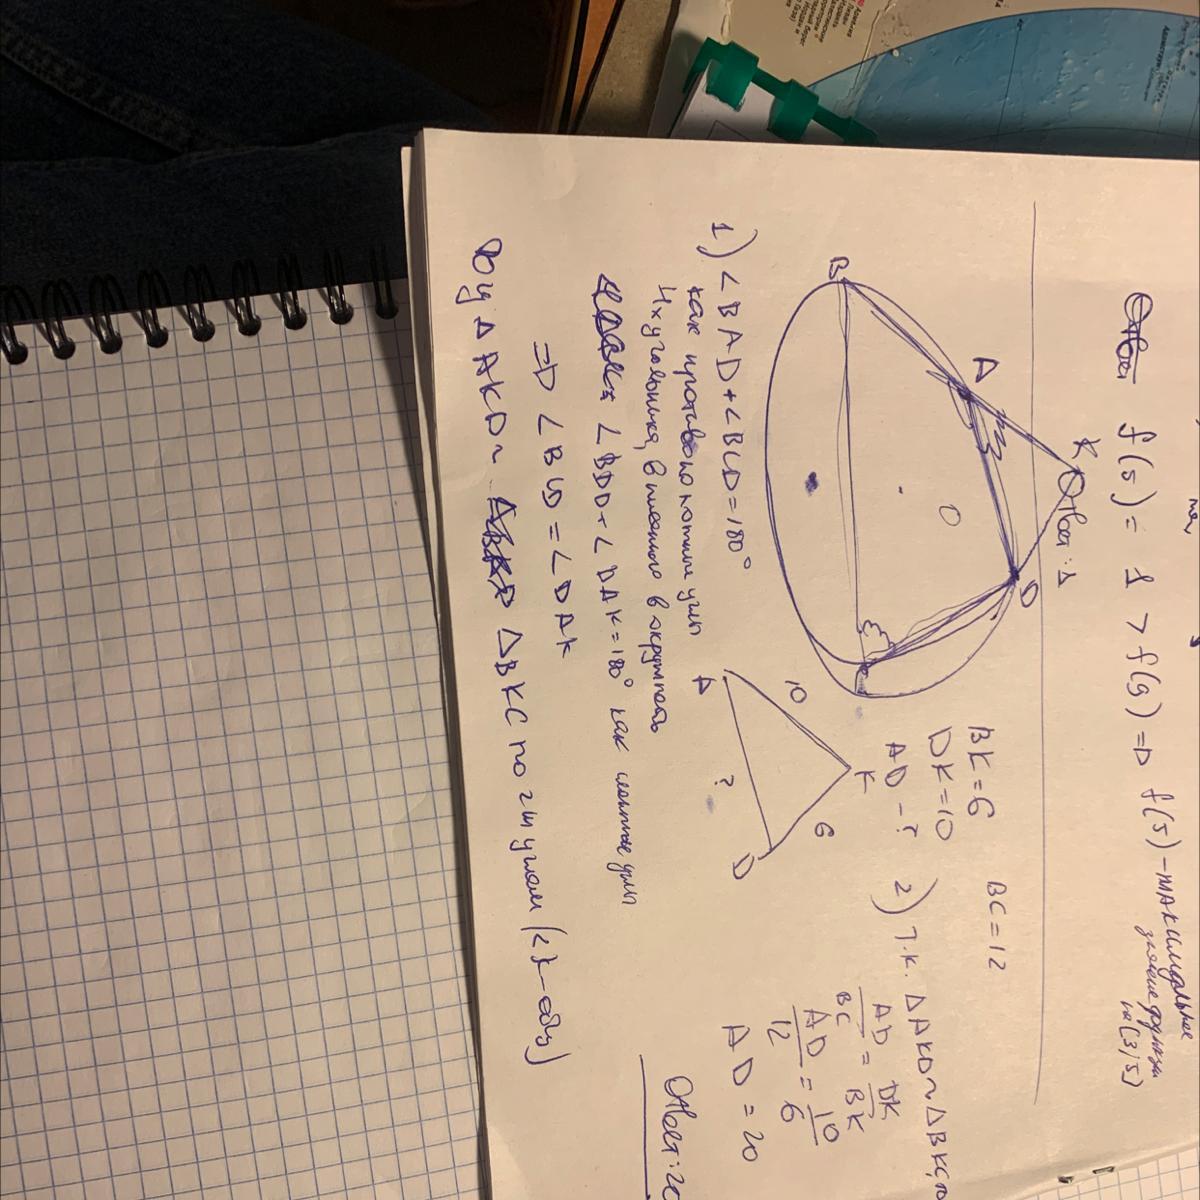 Ответ f(5) = 1 > f(9) => f(5) - максимальное
значение функции
на (3;5)
Ответ: 1
K
A
B
D
O
BK = 6
DK = 10
AD - ?
BC = 12
1) ∠BAD + ∠BCD = 180°
как противоположные углы
4хугольника, вписанного в окружность
∠BDD + ∠DAK = 180° как смежные углы
=> ∠BCD = ∠DAK
ΔAKD ~ ΔBKC по 2м углам (∠K - общ)
A
10
K
6
D
?
2) т.к. ΔAKD ~ ΔBKC, то
AD/BC = DK/BK
AD/12 = 10/6
AD = 20
Ответ: 2